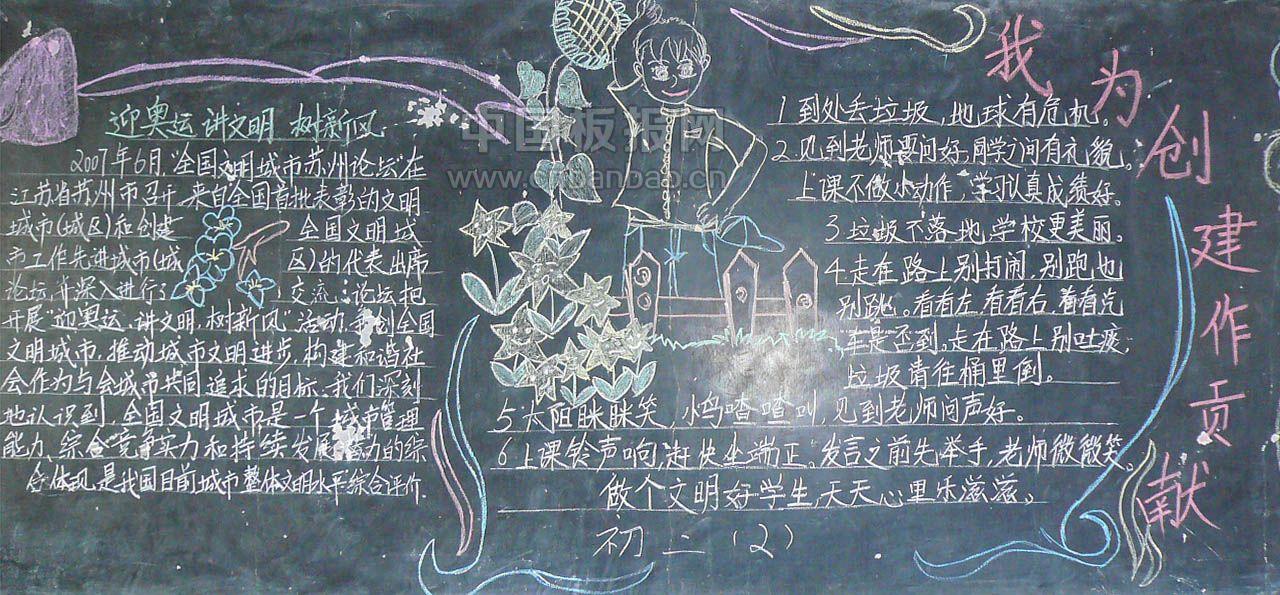 我为创建作贡献
迎奥运 讲文明 树新风
2007年6月，“全国文明城市苏州论坛”在
江苏省苏州市召开，来自全国首批表彰的文明
城市(城区)和创建 全国文明城
市工作先进城市(城 区)的代表出席
论坛，并深入进行了 交流；论坛把
开展“迎奥运、讲文明，树新风”活动，创全国
文明城市，推动城市文明进步，构建和谐社
会作为与会城市共同追求的目标。我们深刻
地认识到，全国文明城市是一个城市管理
能力、综合竞争实力和持续发展动的综
合体现，是我国目前城市整体文明水平综合评价
1 到处丢垃圾，地球有危机。
2 见到老师要问好，同学之间有礼貌。
上课不做小动作，学习认真成绩好。
3 垃圾不落地，学校更美丽。
4 走在路上别打闹，别跑也
别跳。看看左，看看右，看看汽
车是否到，走在路上别吐痰，
垃圾请往桶里倒。
5 太阳眯眯笑，小鸟喳喳叫，见到老师问声好。
6 上课铃声响，赶快坐端正。发言之前先举手，老师微微笑。
做个文明好学生，天天心里乐滋滋。
初二（2）
中国板报网
www.cnbanbao.cn